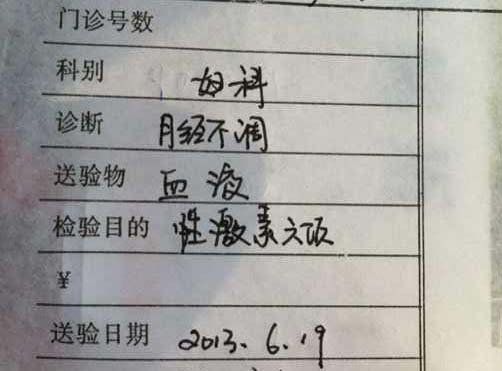 门诊号数
科别 妇科
诊断 月经不调
送验物 血液
检验目的 性激素六项
¥
送验日期 2013.6.19